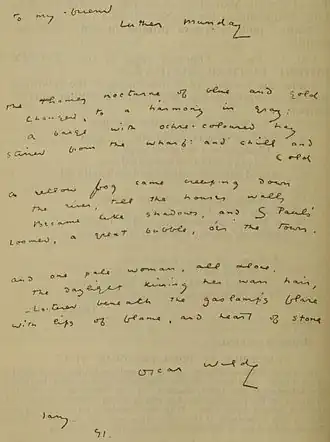 To my friend
Luther Munday
The Thames nocturne of blue and gold
Changed to a harmony in gray:
a barge with ochre-coloured hay
stirred from the wharf: and chill and
Cold
a yellow fog came creeping down
the river, till the houses' walls
Became like shadows, and S. Paul's
Loomed, a great bubble, o'er the town.
and one pale woman, all alone,
The daylight kissing her wan hair,
Loitered beneath the gaslamp's flare
with lips of flame, and heart of stone
Oscar Wilde
91.